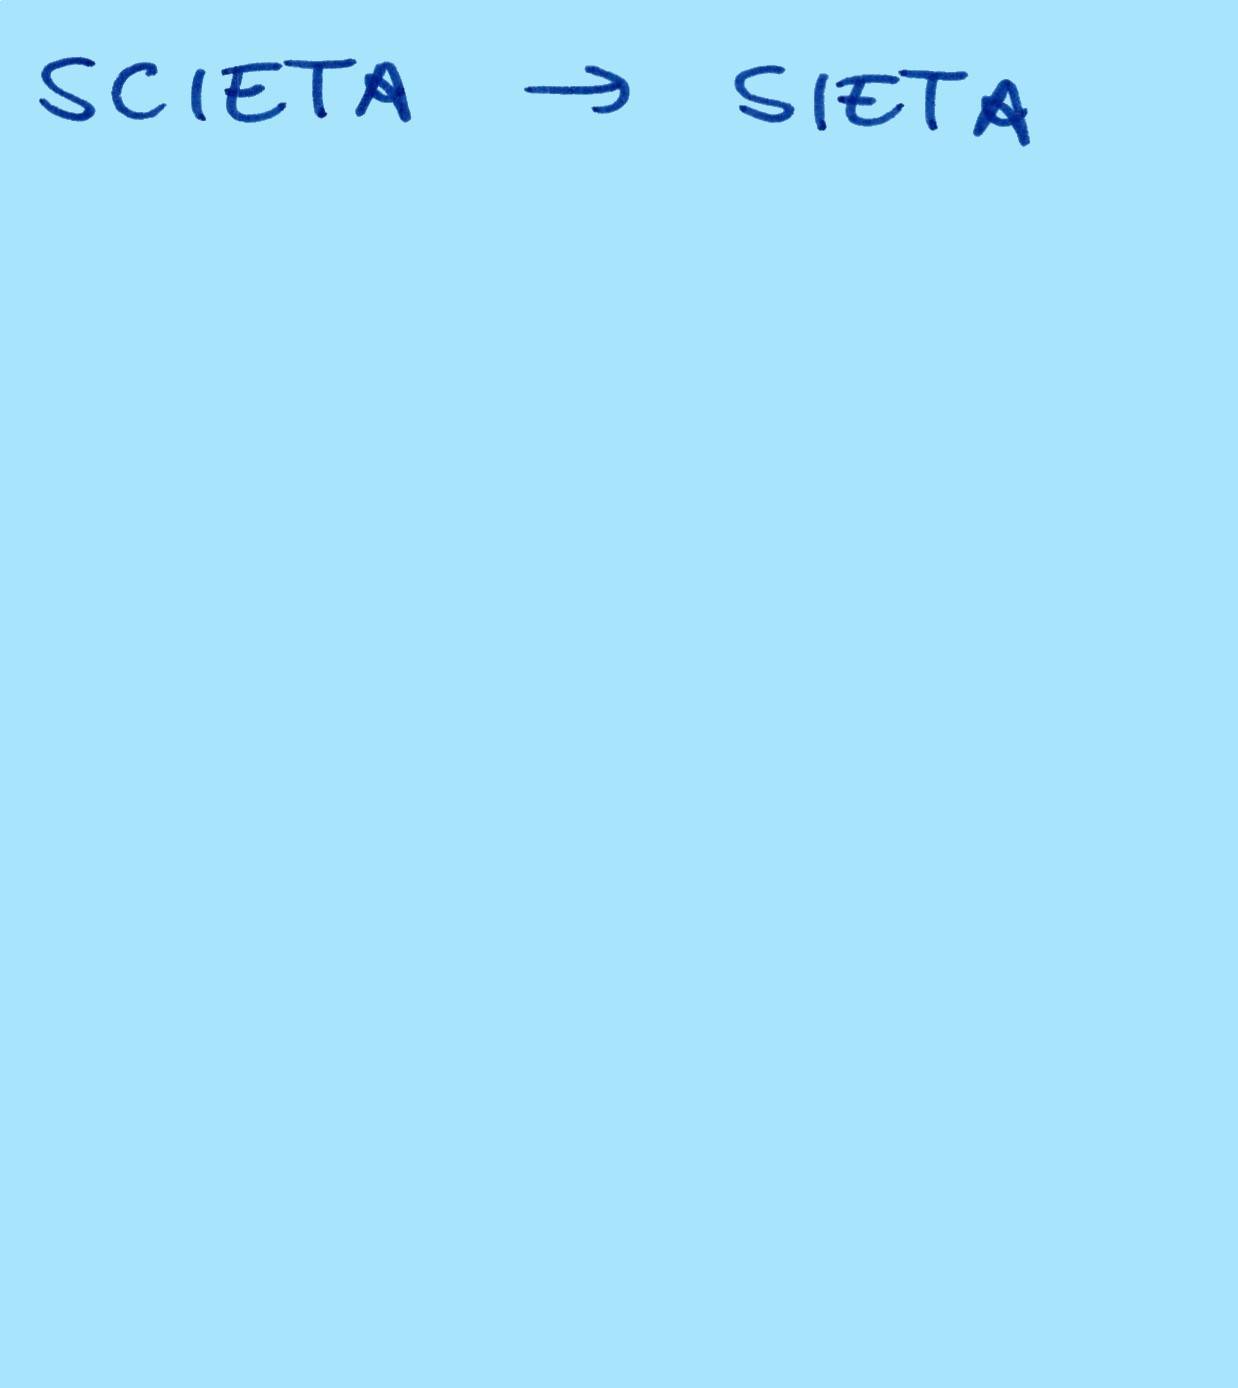 SCIETA → SIETA